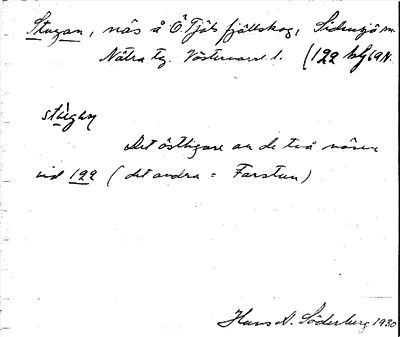 Stugan, näs å Ö. Tjäls fjällskog, Sidensjö sn.
Nätra tg. Västernorrl. l. (122
stùgan
Det östligare av de två näsen
vid 122 (det andra = Farstun)
Hans A. Söderberg 1930